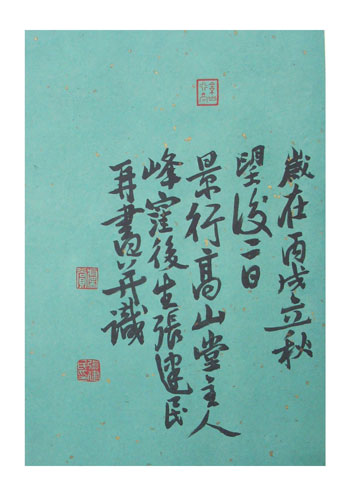 歲在丙戌立秋
望後二日
景行高山堂主人
峰窪後生張建民
再書并識